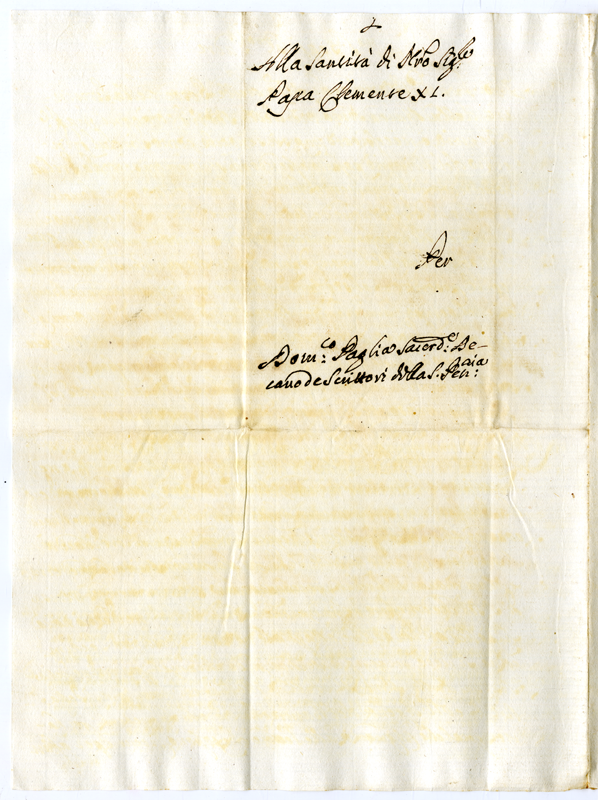 Alla Santità di Nrõ Sig.re
Papa Clemente XI.
Per
Dom.co Paglia Sacerd.e De-
cano de Scrittori della S. Pen.aria